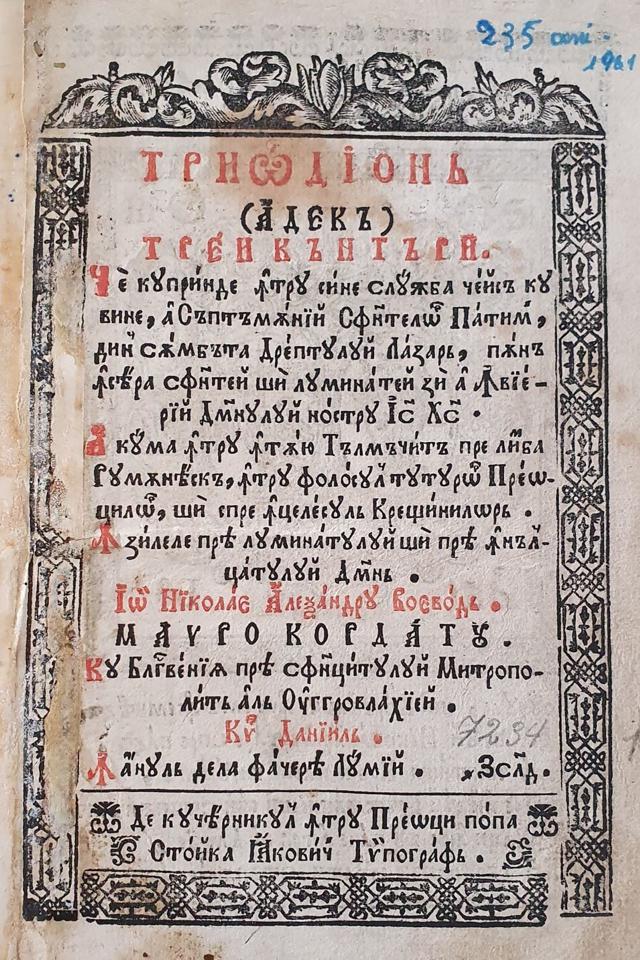 235 ani.
1961
ТРИѠ҆ДІОНЬ
(А҆́ДЕКЪ)
ТРЕ́Й КЪНТЪРЙ.
Чѐ кꙋпри́нде ꙟ҆́трꙋ си́не слꙋ́жба че́йсъ кꙋ
вине, а҆ Съптъмѫ́нїй Сфи́телѡ҆ Па́тимй,
дин҆ сѫ́мбъта Дре́птꙋлꙋй Ла́зарь, пѫнъ
ꙟ҆се́ра сфи́тей шѝ лꙋмина́тей зѝ а҆̀ ꙟ҆вїе́-
рїй Дм҃нꙋлꙋй но́строу І҆с҃ Хс҃.
А҆кꙋ́ма ꙟ҆́трꙋ ꙟ҆тѫ́ю Тълмъчи́тъ пре ли́мба
Рꙋмѫне́скъ, ꙟ҆́трꙋ фоло́сꙋл тꙋтꙋрѡ҆ Пре́ѡ-
цилѡ҆, шѝ спре ꙟ҆целе́сꙋль Крещи́нилѡрь.
Ꙟ҆ зи́леле прѐ лꙋмина́тꙋлꙋй шѝ прѐ ꙟ҆нъл-
ца́тꙋлꙋй Дм҃нь.
І҆ѡ҃ Нїкола́е А҆леѯа́ндрꙋ Воево́дь.
МАѴРОКОРДА́ТꙊ.
Кꙋ Блгⷭ҇ве́нїѧ прѐ сфинци́тꙋлꙋй Митропо-
ли́тъ а҆́ль Оу҆ггровла́хїей.
Кѵ́р Данїи́ль.
Ꙟ҆ а҆́нꙋль дела фа́черѐ Лꙋ́мїй. ҂ЗСЛД.
7234
Де кꙋче́рникꙋл ꙟ҆́трꙋ Пре́ѡци по́па
Сто́йка Ꙗ҆кови́ч Тѷпогра́фь.